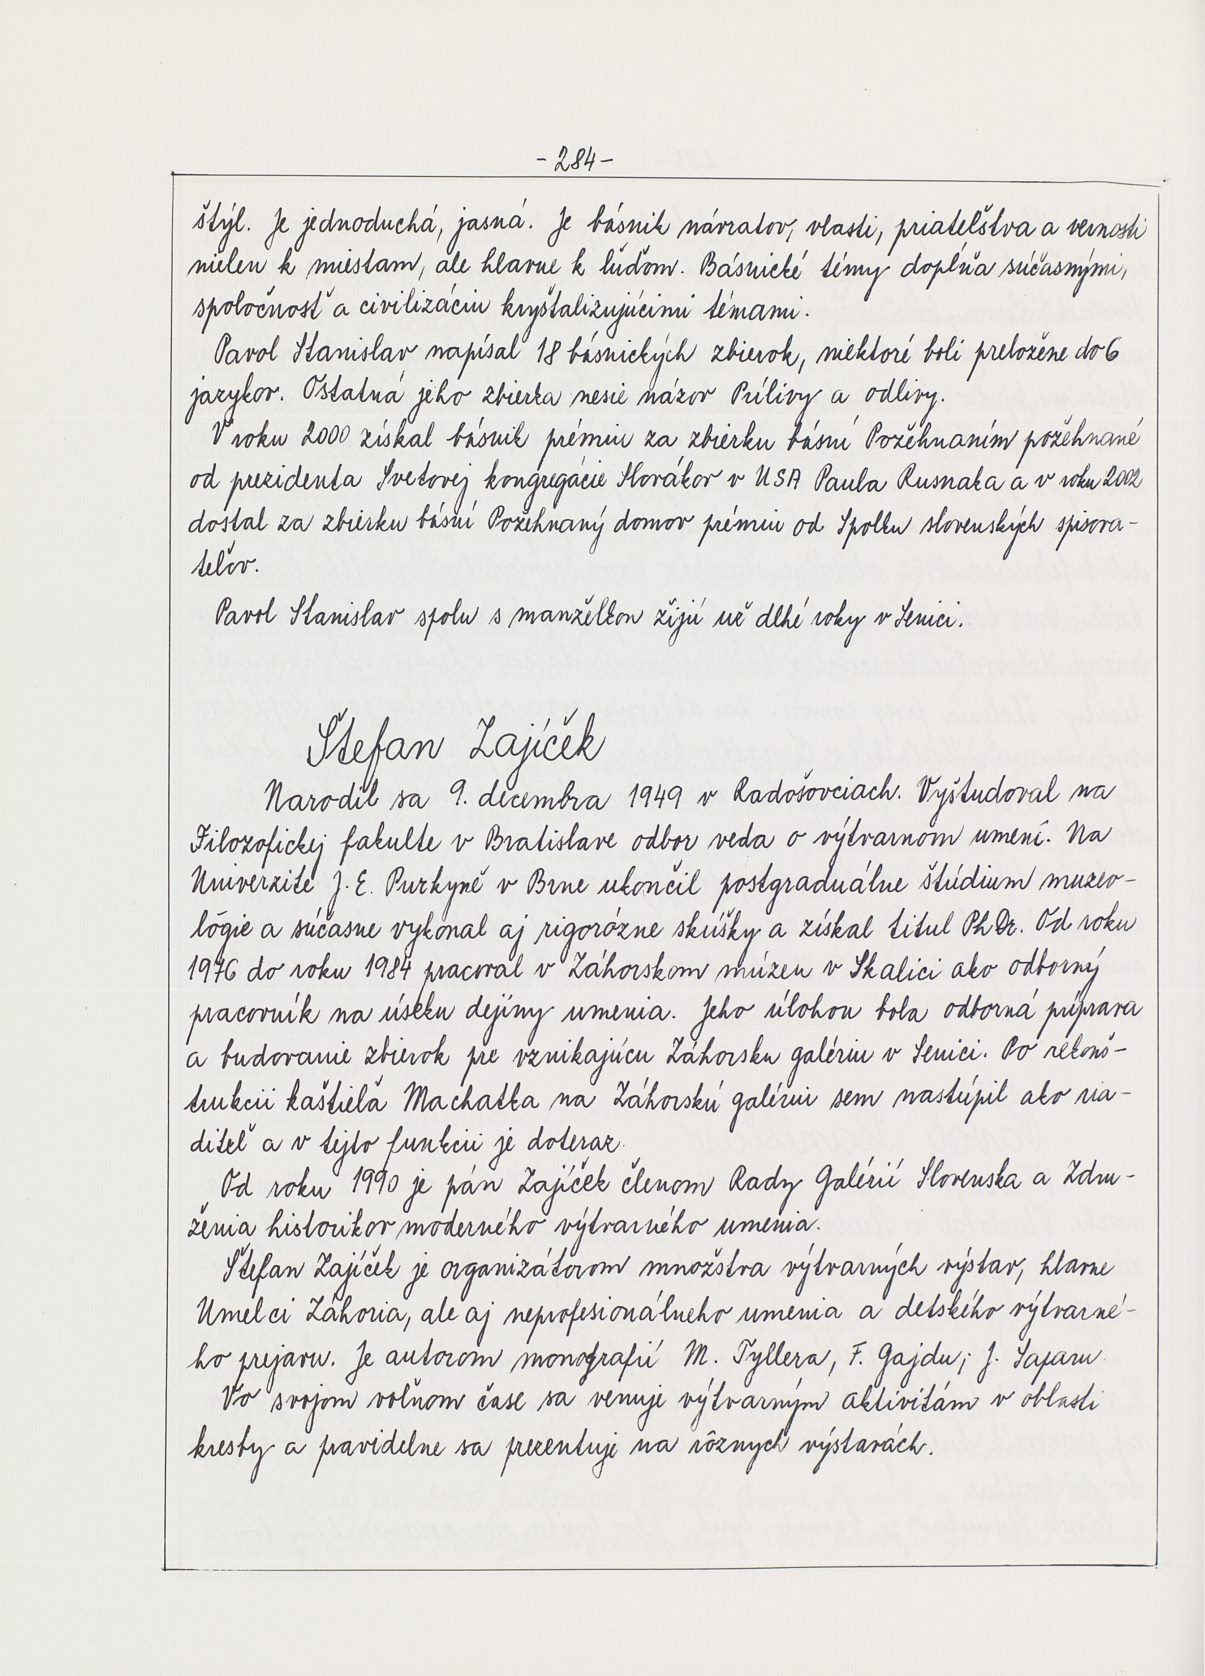 - 284 -
štýl. Je jednoduchá, jasná. Je básnik návratov, vlasti, priateľstva a vernosti
nielen k miestam, ale hlavne k ľuďom. Básnické témy dopĺňa súčasnými,
spoločnosť a civilizáciu kryštalizujúcimi témami.
Pavol Stanislav napísal 18 básnických zbierok, niektoré boli preložene do 6
jazykov. Ostatná jeho zbierka nesie názov Prílivy a odlivy.
V roku 2000 získal básnik prémiu za zbierku básní Požehnaním požehnané
od prezidenta Svetovej kongregácie Slovákov v USA Paula Rusnaka a v roku 2002
dostal za zbierku básní Požehnaný domov prémiu od Spolku slovenských spisova-
teľov.
Pavol Stanislav spolu s manželkou žijú už dlhé roky v Senici.
Štefan Zajíček
Narodil sa 9. decembra 1949 v Radošovciach. Vyštudoval na
Filozofickej fakulte v Bratislave odbor veda o výtvarnom umení. Na
Univerzite J. E. Purkyně v Brne ukončil postgraduálne štúdium muzeo-
lógie a súčasne vykonal aj rigorózne skúšky a získal titul PhDr. Od roku
1976 do roku 1984 pracoval v Záhorskom múzeu v Skalici ako odborný
pracovník na úseku dejiny umenia. Jeho úlohou bola odborná príprava
a budovanie zbierok pre vznikajúcu Záhorsku galériu v Senici. Po rekonš-
trukcii kaštieľa Machatka na Záhorskú galériu sem nastúpil ako ria-
diteľ a v tejto funkcii je doteraz.
Od roku 1990 je pán Zajíček členom Rady Galérií Slovenska a Zdru-
ženia historikov moderného výtvarného umenia.
Štefan Zajíček je organizátorom množstva výtvarných výstav, hlavne
Umelci Záhoria, ale aj neprofesionálneho umenia a detského výtvarné-
ho prejavu. Je autorom monografií M. Tyllera, F. Gajdu, J. Saparu.
Vo svojom voľnom čase sa venuje výtvarným aktivitám v oblasti
kresby a pravidelne sa prezentuje na rôznych výstavách.